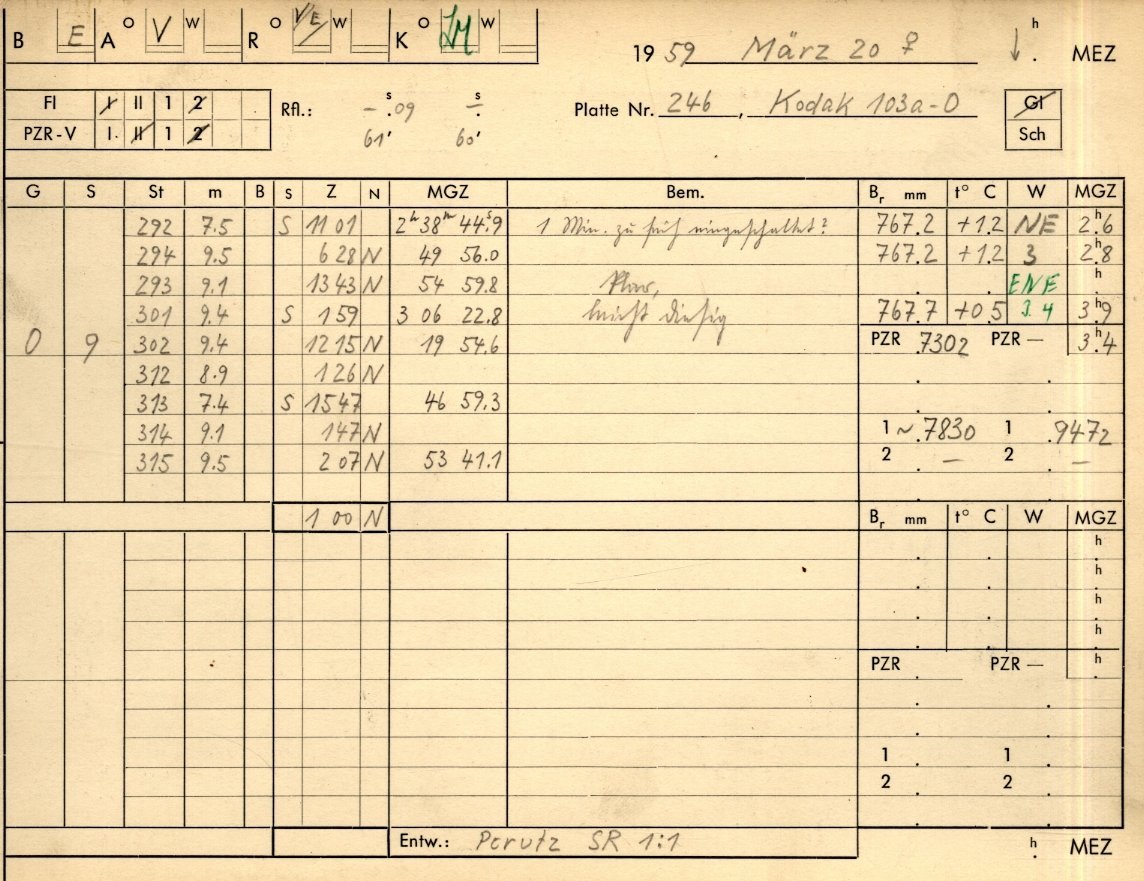 B E A O V W R O V/E W K O W
19 59 März 20 ♀ h MEZ
Fl I II 1 2 Rfl.: – s.09 s – Platte Nr. 246, Kodak 103a-O Gl
PZR-V I II 1 2 61' 60' Sch
G S St m B S Z N MGZ Bem. Br mm t° C W MGZ
292 7.5 S 11 01 2h 38m 44s.9 1 Min. zu früh eingeschaltet? 767.2 +1.2 NE 2h.6
294 9.5 6 28 N 49 56.0 767.2 +1.2 3 2h.8
293 9.1 13 43 N 54 59.8 Klar, ENE h
301 9.4 S 1 59 3 06 22.8 leicht diesig 767.7 +0.5 3.4 3h.9
0 9 302 9.4 12 15 N 19 54.6 PZR .7302 PZR — 3h.4
312 8.9 1 26 N
313 7.4 S 15 47 46 59.3
314 9.1 1 47 N 1 ~.7830 1 .9472
315 9.5 2 07 N 53 41.1 2 – 2 –
1 00 N Br mm t° C W MGZ
h
h
h
h
PZR PZR — h
1 1
2 2
Entw.: Perutz SR 1:1 h MEZ